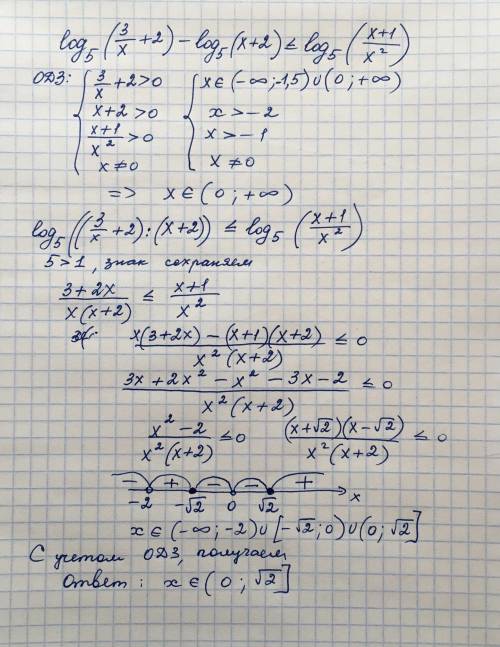 log₅(3/x + 2) − log₅(x+2) ≤ log₅((x+1)/x²)
ОДЗ: { 3/x + 2 > 0 { x ∈ (−∞; −1,5) ∪ (0; +∞)
x + 2 > 0 x > −2
(x+1)/x² > 0 x > −1
x ≠ 0 x ≠ 0
=> x ∈ (0; +∞)
log₅((3/x + 2) : (x+2)) ≤ log₅((x+1)/x²)
5 > 1, знак сохраняем
(3+2x)/(x(x+2)) ≤ (x+1)/x²
(x(3+2x) − (x+1)(x+2))/(x²(x+2)) ≤ 0
(3x + 2x² − x² − 3x − 2)/(x²(x+2)) ≤ 0
(x² − 2)/(x²(x+2)) ≤ 0 ((x+√2)(x−√2))/(x²(x+2)) ≤ 0
− + − − +
−2 −√2 0 √2 x
x ∈ (−∞; −2) ∪ [−√2; 0) ∪ (0; √2]
С учетом ОДЗ, получаем
Ответ: x ∈ (0; √2]